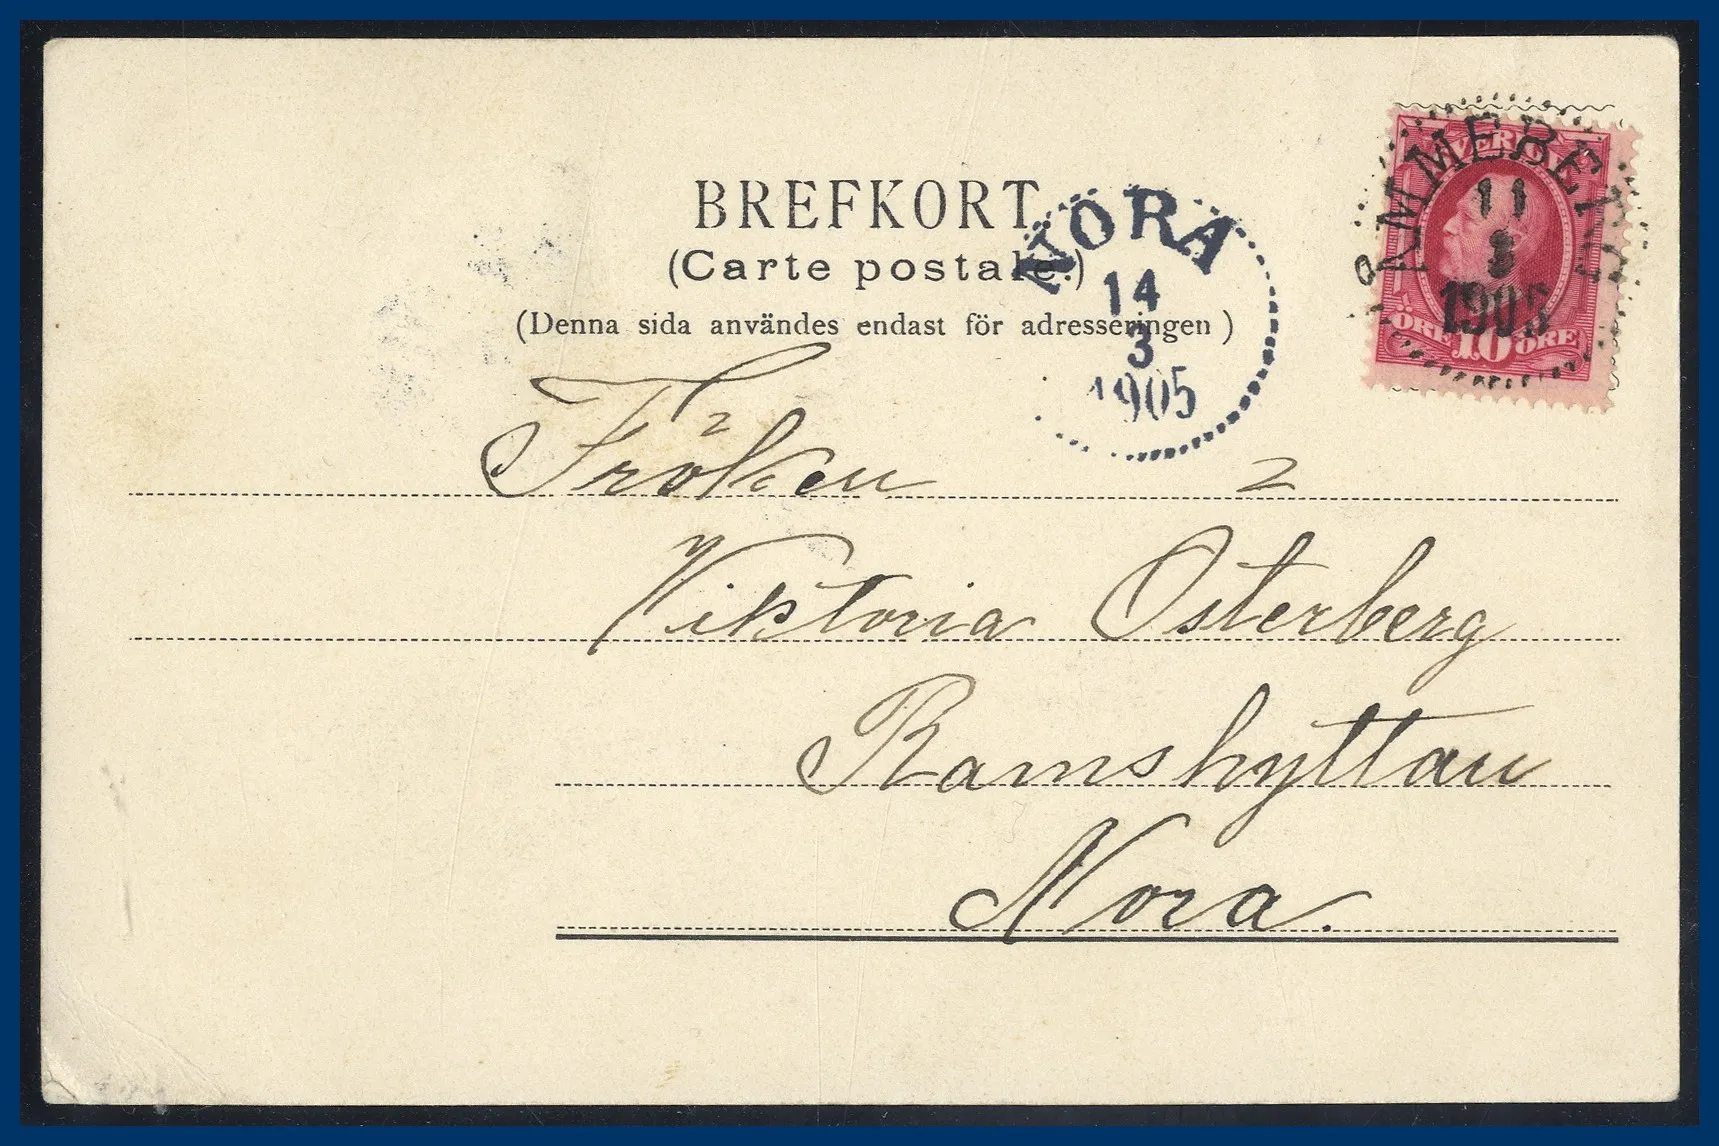 BREFKORT
(Carte postale.)
(Denna sida användes endast för adresseringen)
NORA
14
3
1905
SVERIGE
11
3
1905
ÖRE 10 ÖRE
Fröken 2
Viktoria Österberg
Ramshyttan
Nora.